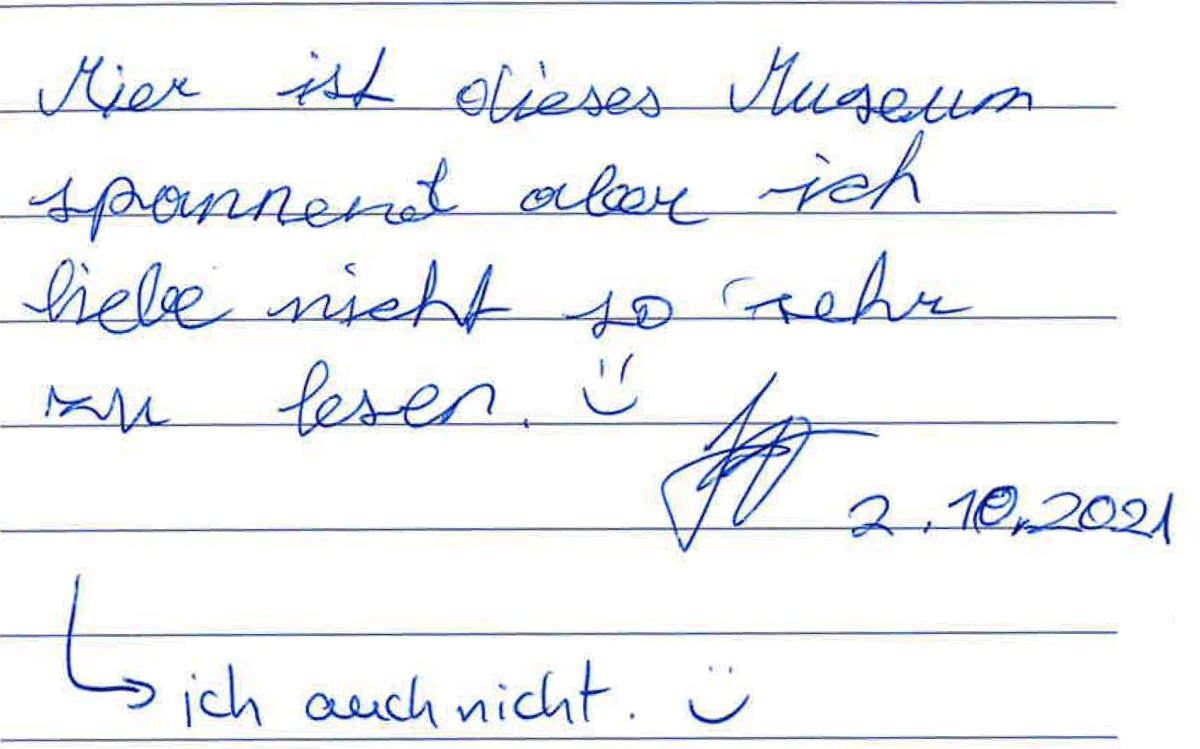 Hier ist dieses Museum
spannend aber ich
liebe nicht so sehr
zu lesen. Ü
2.10.2021
↳ ich auch nicht. Ü